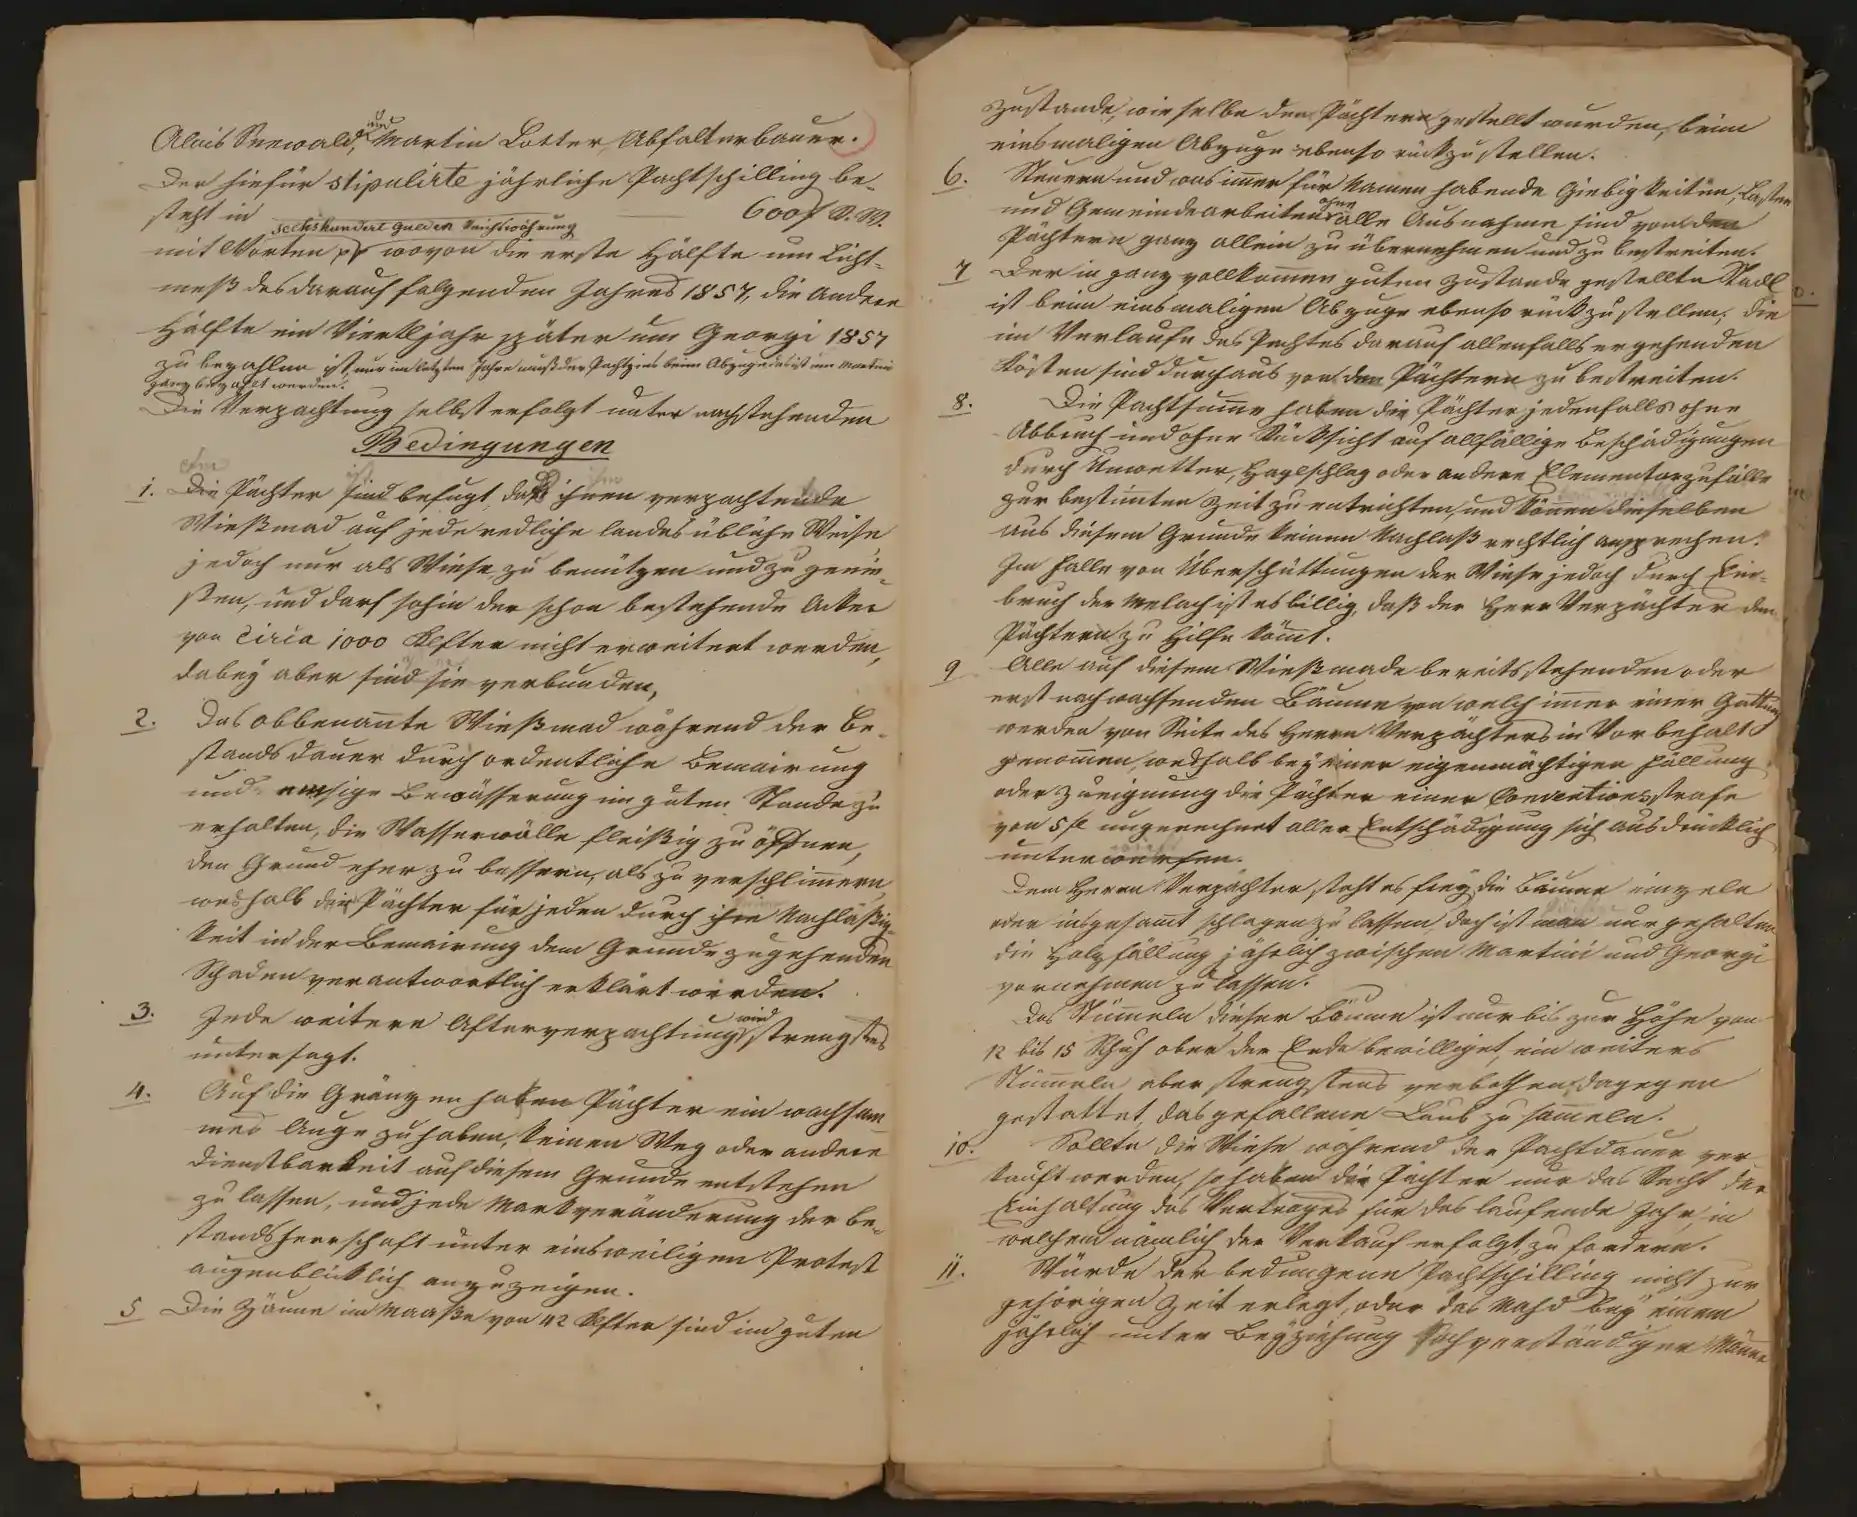 Alois Seewald, und Martin Lotter, Abfalterbauer.
Der hiefür stipulirte jährliche Pachtschilling be-
steht in 600 f R. W.
sechshundert Gulden Reichswährung
mit Worten wovon die erste Hälfte um Licht-
meß des darauf folgenden Jahres 1857, die andere
Hälfte ein Vierteljahr später um Georgi 1857
zu bezahlen ist, nur im letzten Jahre muß der Pachtzins beim Abzuge das ist um Martini
ganz bezahlt werden.
Die Verpachtung selbst erfolgt unter nachstehenden
Bedingungen
1. Die Pächter sind befugt, das ihnen verpachtende
Wießmad auf jede redliche landesübliche Weise
jedoch nur als Wiese zu benützen und zu genie-
ßen, und darf sohin der schon bestehende Acker
von circa 1000 Klafter nicht erweitert werden,
dabey aber sind sie verbunden,
2. Das obbenannte Wießmad während der Be-
standsdauer durch ordentliche Bemairung
und emsige Bewässerung im guten Stande zu
erhalten, die Wasserwälle fleißig zu öffnen,
den Grund eher zu bessern, als zu verschlimmern,
weshalb die Pächter für jeden durch ihre Nachläßig-
keit in der Bemairung dem Grunde zugehenden
Schaden verantwortlich erklärt werden.
3. Jede weitere Afterverpachtung wird strengstens
untersagt.
4. Auf die Gränzen haben Pächter ein wachsam-
mes Auge zu haben, keinen Weg oder andere
Dienstbarkeit auf diesem Grunde entstehen
zu lassen, und jede Markveränderung der Be-
standsherrschaft unter einsweiligen Protest
augenblicklich anzuzeigen.
5 Die Zäune im Maaße von 42 Klafter sind im guten
Zustande, wie selbe den Pächtern gestellt wurden, beim
einsmaligen Abzuge ebenso rückzustellen.
6. Steuern und was immer für Namen habende Giebigkeiten, Lasten
und Gemeindearbeiten ohne alle Ausnahme sind von den
Pächtern ganz allein zu übernehmen und zu bestreiten.
7 Der in ganz vollkommen guten Zustande gestellte Stadl
ist beim einsmaligen Abzuge ebenso rückzustellen; die
im Verlaufe des Pachtes darauf allenfalls ergehenden
Kösten sind durchaus von den Pächtern zu bestreiten.
8. Die Pachtsumme haben die Pächter jedenfalls ohne
Abbruch und ohne Rücksicht auf allfällige Beschädigungen
durch Unwetter, Hagelschlag oder andere Elementarzufälle
zur bestimten Zeit zu entrichten, und können dieselben
aus diesem Grunde keinen Nachlaß rechtlich ansprechen.
Im Falle von Überschüttungen der Wiese jedoch durch Ein-
bruch der Melach ist es billig, daß der Herr Verpächter den
Pächtern zu Hilfe kömmt.
9 Alle auf diesem Wießmade bereits stehenden oder
erst nachwachsenden Bäume von welch immer einer Gattung
werden von Seite des Herrn Verpächters in Vorbehalt
genommen, weshalb bey einer eigenmächtigen Fällung
oder Zueignung die Pächter einer Conventionsstrafe
von 5 fl ungerechnet aller Entschädigung sich ausdrücklich
unterwerfen.
Dem Herrn Verpächter steht es frey, die Bäume einzeln
oder insgesammt schlagen zu lassen, doch ist man nur gehalten
die Holzfällung jährlich zwischen Martini und Georgi
vornehmen zu lassen.
Das Stümmeln dieser Bäume ist nur bis zur Höhe von
12 bis 15 Schuh ober der Erde bewilliget, ein weiters
Stümmeln aber strengstens verbothen, dagegen
gestattet, das gefallene Laub zu sammeln.
10. Sollte die Wiese während der Pachtdauer ver
kauft werden, so haben die Pächter nur das Recht der
Einhaltung des Vertrages für das laufende Jahr, in
welchem nämlich der Verkauf erfolgt, zu fordern.
11. Würde der bedungene Pachtschilling nicht zur
gehörigen Zeit erlegt, oder das Mahd bey einem
jährlich unter Beyziehung sachverständiger Männer